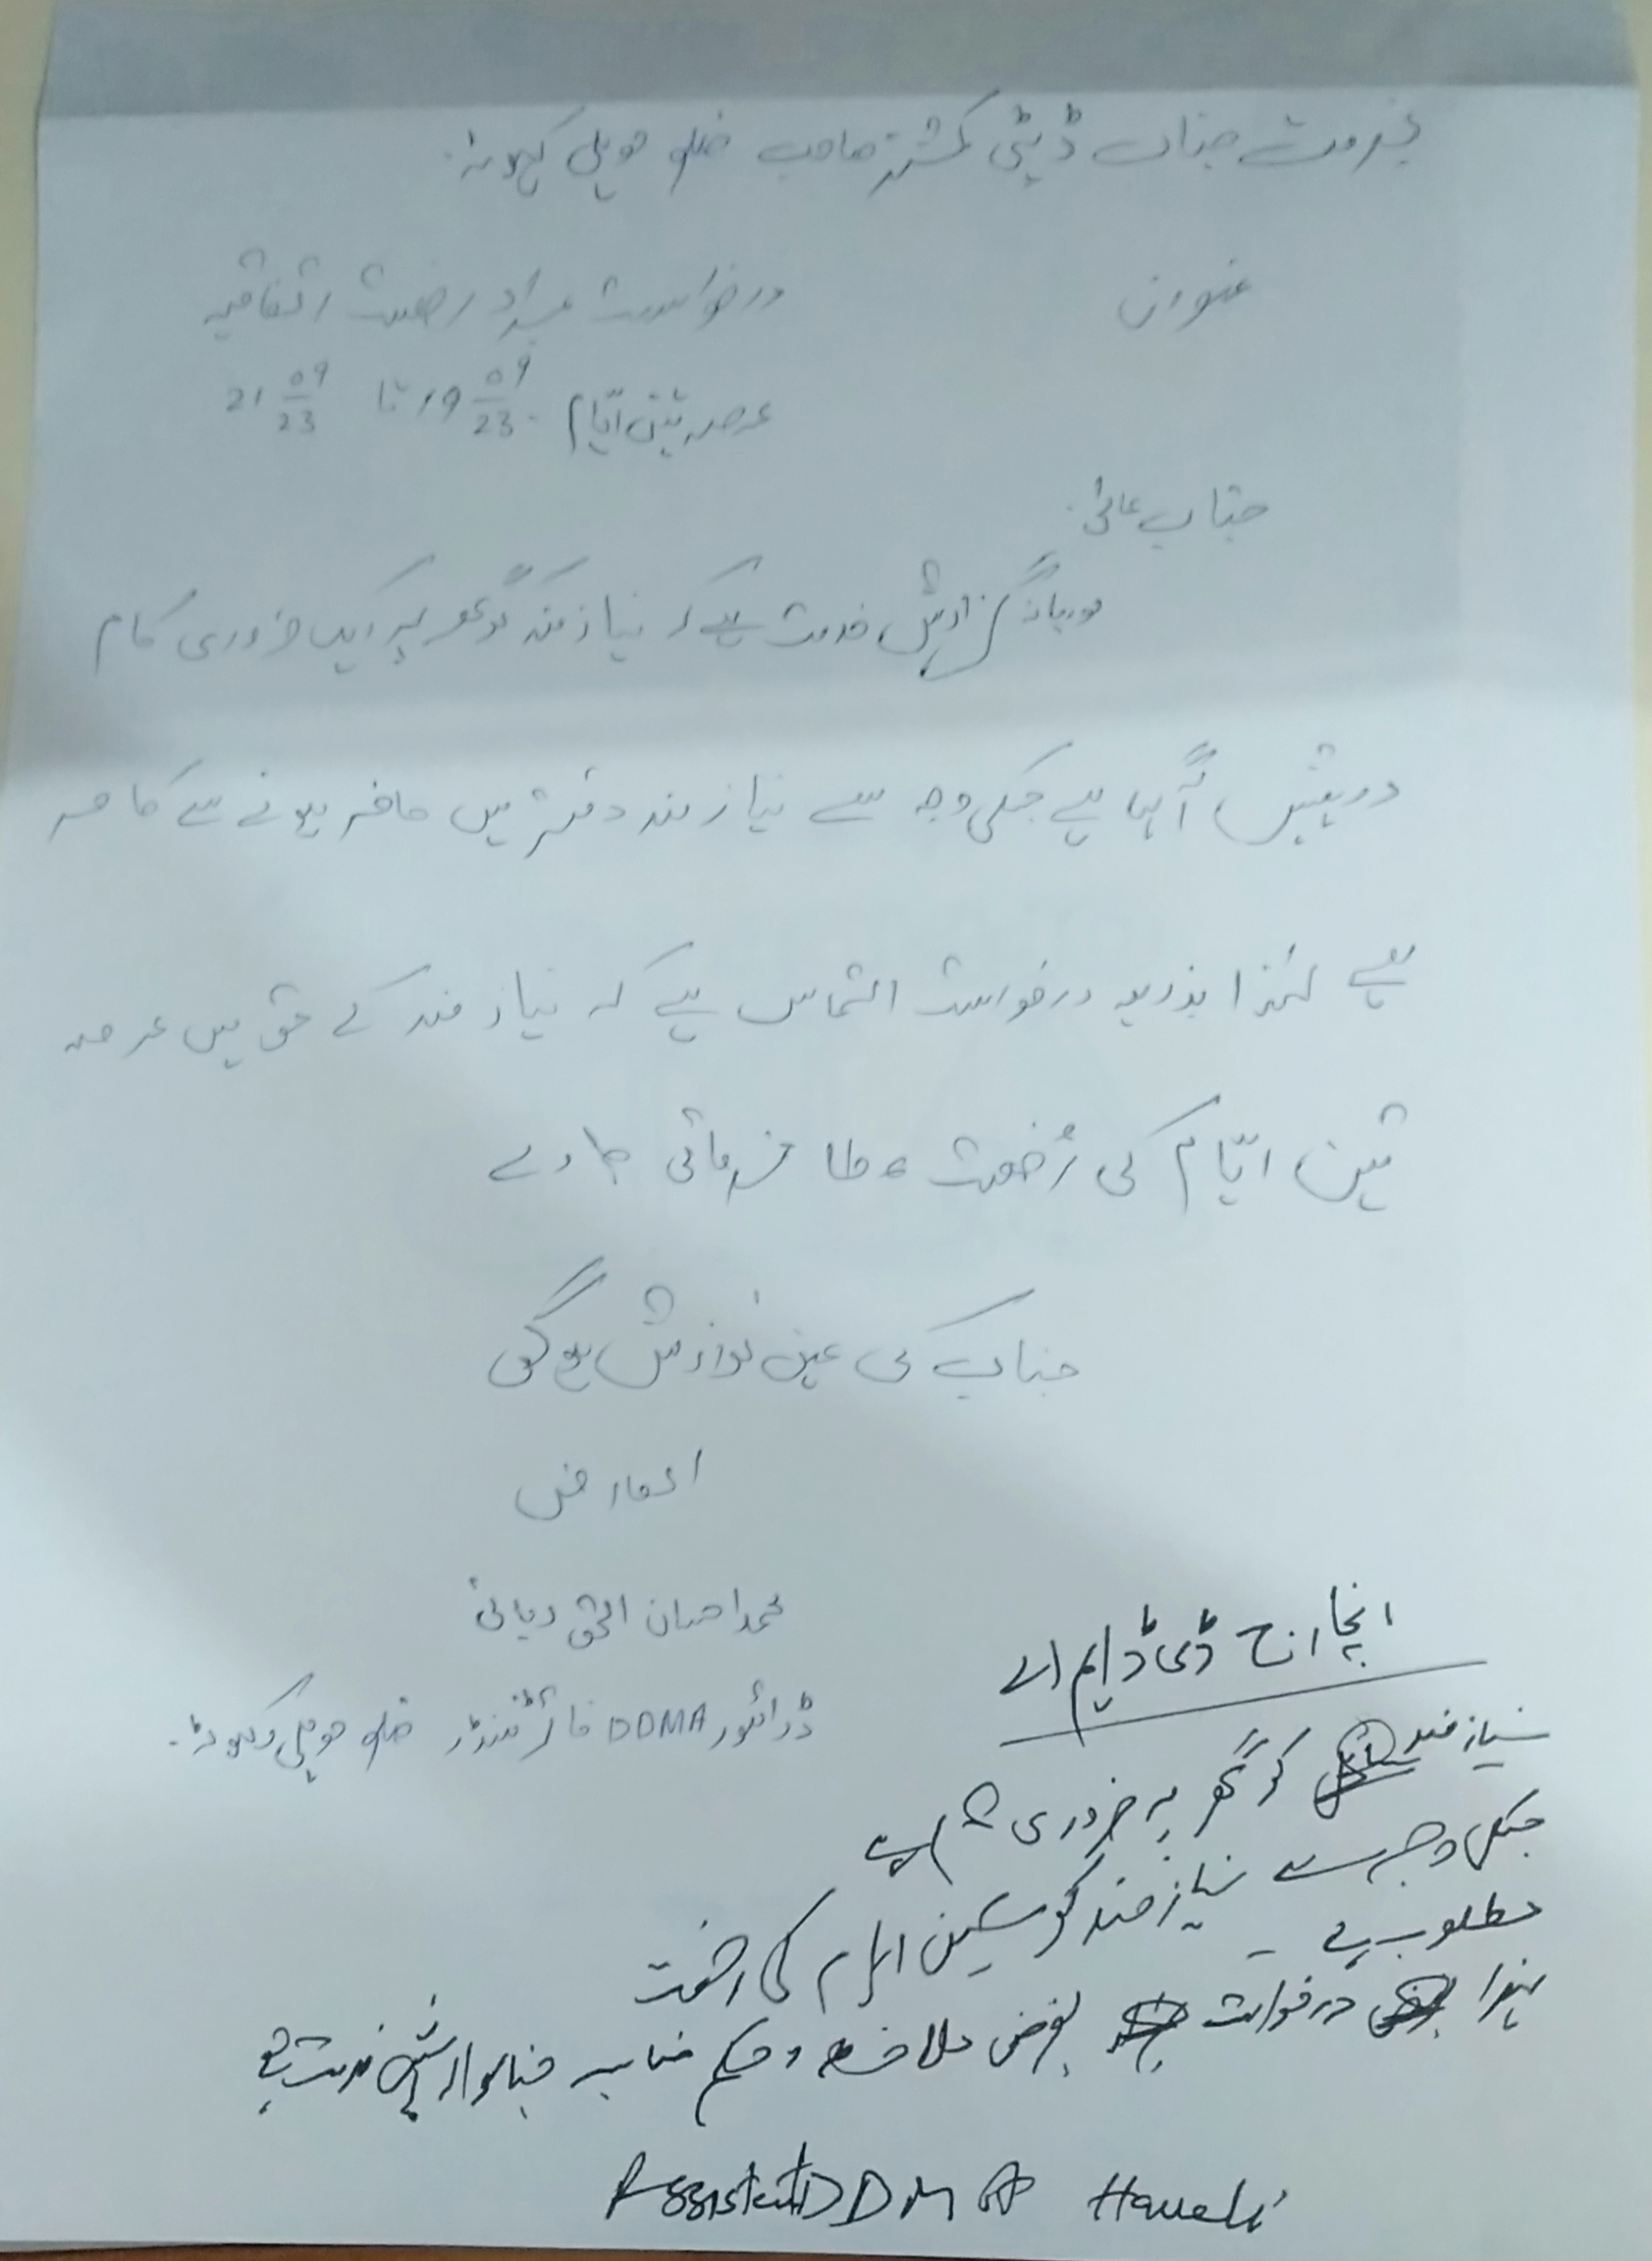 بخدمت جناب ڈپٹی کمشنر صاحب ضلع حویلی کہوٹہ۔
عنوان
درخواست بمراد رخصت اتفاقیہ
عرصہ تین ایّام 19 09/23 تا 21 09/23
جناب عالی۔
گزارش خدمت ہے کہ نیازمند کو گھر پر ایک ضروری کام
درپیش آ گیا ہے جسکی وجہ سے نیازمند دفتر میں حاضر ہونے سے قاصر
ہے لہٰذا بذریعہ درخواست التماس ہے کہ نیاز مند کے حق میں عرصہ
تین ایّام کی رُخصت عطا فرمائی جاوے
جناب کی عین نوازش ہو گی
العارض
محمد احسان الحق
ڈرائیور DDMA فائر ٹینڈر ضلع حویلی کہوٹہ۔
انچارج ڈی ڈی ایم اے
نیازمند کو گھر پہ ضروری کام ہے
جسکی وجہ سے نیازمند کو تین ایام کی رخصت
مطلوب ہے۔
لہذا درخواست بغرض ملاحظہ و حکم مناسب ارسال خدمت ہے
Assistant DDMA Haveli